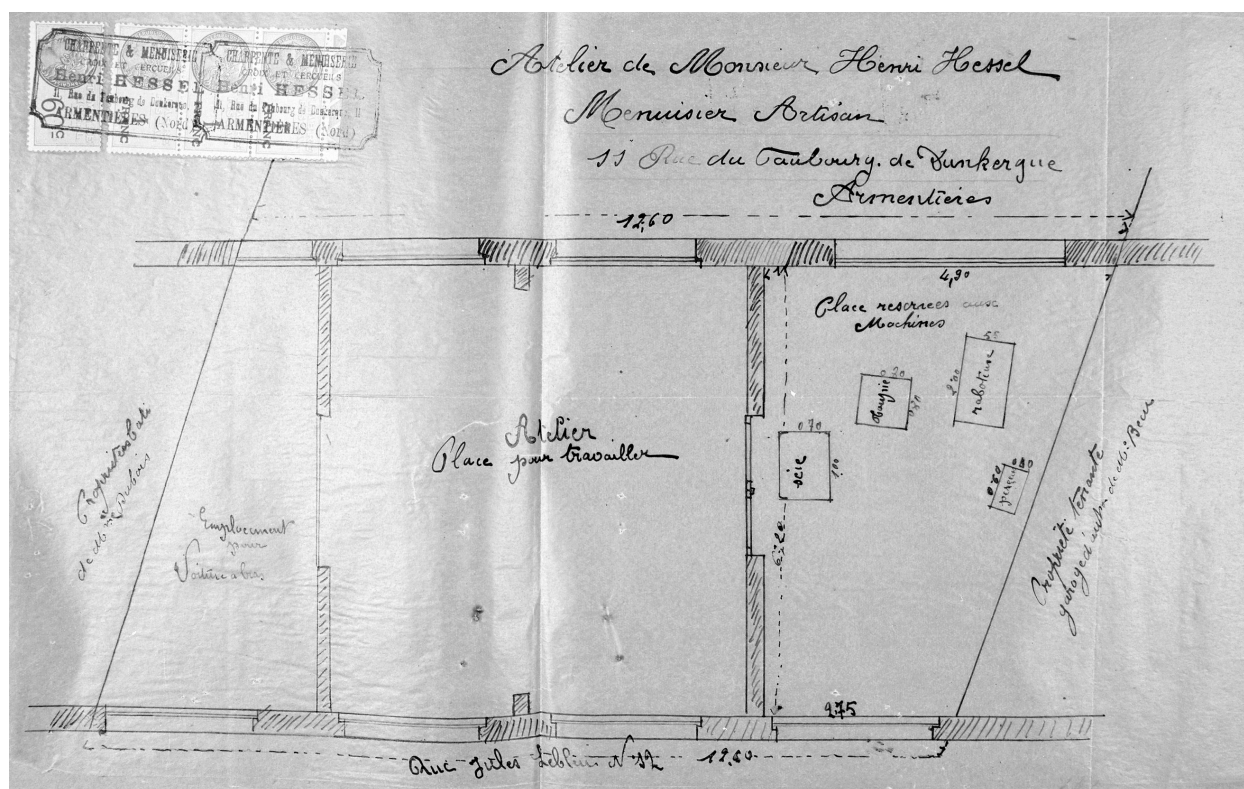 CHARPENTE & MENUISERIE
CROIX ET CERCUEILS
Henri HESSEL
11, Rue du Faubourg de Dunkerque, 11
ARMENTIÈRES (Nord)
CHARPENTE & MENUISERIE
CROIX ET CERCUEILS
Henri HESSEL
11, Rue du Faubourg de Dunkerque, 11
ARMENTIÈRES (Nord)
Atelier de Monsieur Henri Hessel
Menuisier Artisan
11 Rue du Faubourg. de Dunkerque
Armentières
12,60
4,90
Place reservées aux
Machines
55
2,00
raboteuse
0 20
toupie
0,80
0 70
scie
1,00
0,60
Atelier
Place pour travailler
6,20
Propriétés bati
de Mme Dubois
Emplacement
pour
Voiture a bras
Propriété tenante
garage de Mr Beun
2,75
Rue Jules Leblin N 12
12,60